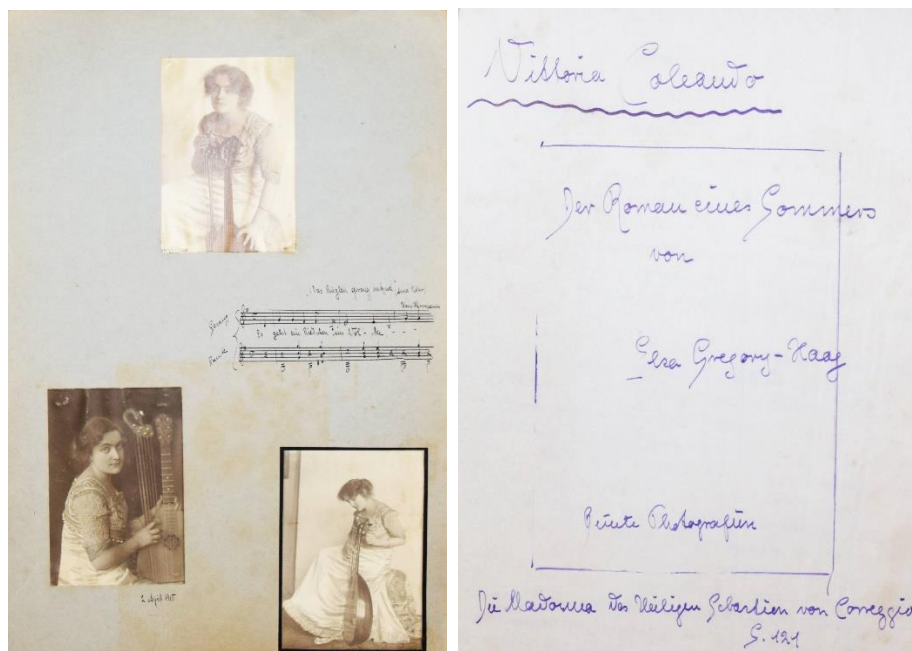 „Das Ringlein sprang entzwei"
Gesang
Es geht ein Liedchen im Vol - ke - - - -
2. April 1915
Vittoria Coleando
Der Roman eines Sommers
von
Elsa Gregory-Haag
Photografien
Die Madonna des Heiligen Sebastien von Correggio
S. 121